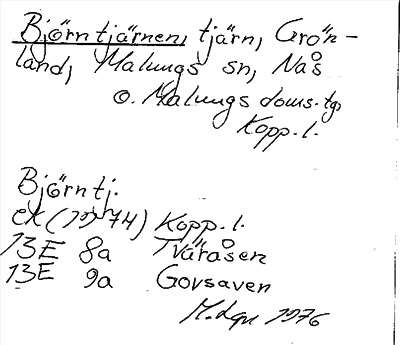 Björntjärnen, tjärn, Grön-
land, Malungs sn, Nås
o. Malungs doms. tg,
Kopp. l.
Björntj.
ek (1974) Kopp. l.
13E 8a Tväråsen
13E 9a Govsaven
1976